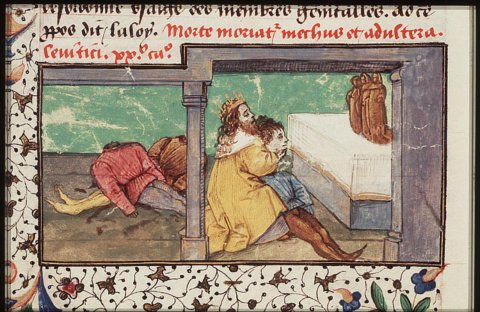 usaige des membres genitalles. ad ce
ppos dit la loy. Morte moriatʳ mechus et adultera.
leuitici. xx.º caº.